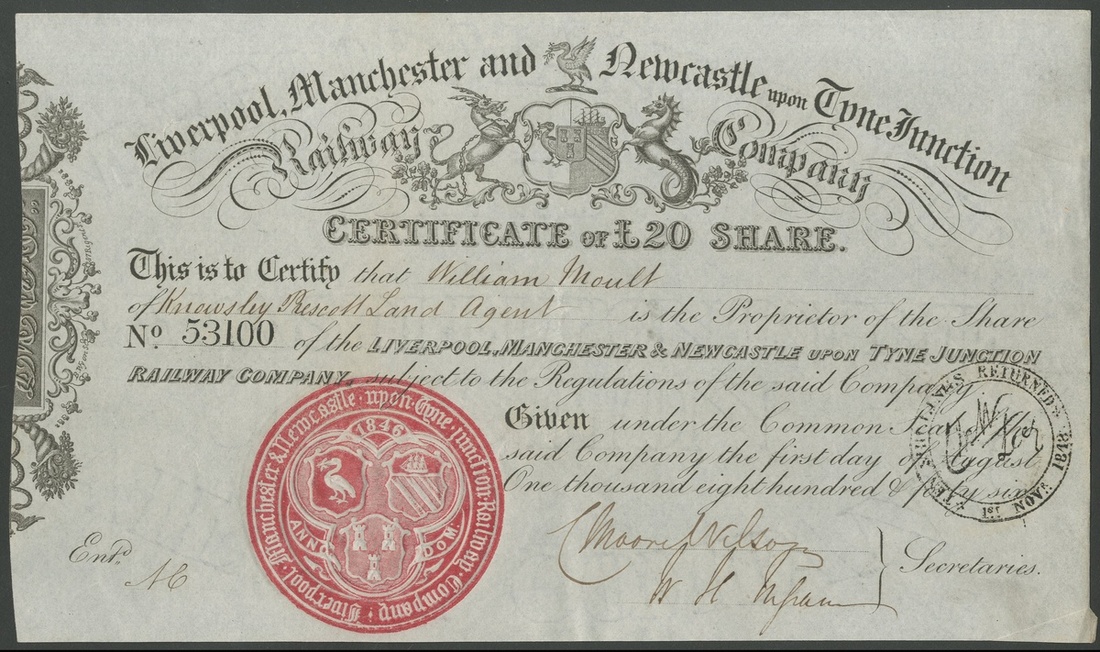 Liverpool, Manchester and Newcastle upon Tyne Junction
Railway Company
CERTIFICATE OF £20 SHARE.
This is to Certify that William Moult
of Knowsley Prescott Land Agent is the Proprietor of the Share
No. 53100 of the LIVERPOOL, MANCHESTER & NEWCASTLE UPON TYNE JUNCTION
RAILWAY COMPANY, subject to the Regulations of the said Company
Given under the Common Seal
said Company the first day of August
One thousand eight hundred & forty six
TEN SHILLINGS RETURNED
NOV. 1st 1848
Liverpool, Manchester & Newcastle upon Tyne Junction Railway Company
1846
ANNO DOM
Entd.
Secretaries.